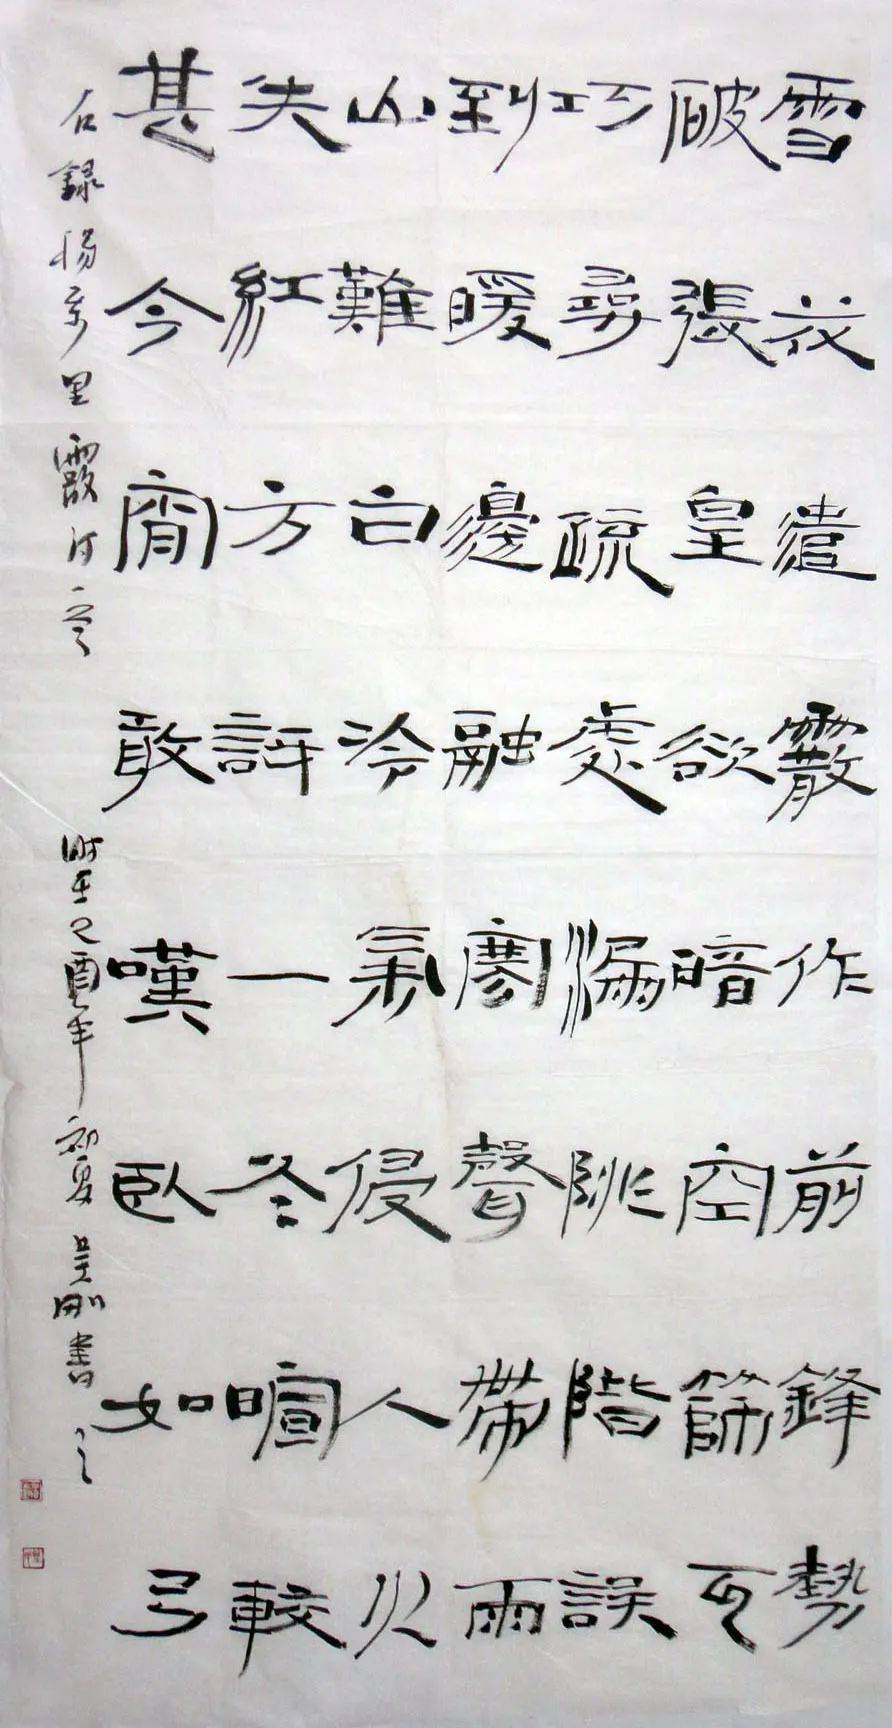 雪花遣霰作前鋒勢
破張皇欲暗空篩瓦
巧尋疏處漏跳階誤
到暖邊融寒聲帶雨
山難白冷氣侵人火
失紅方訝一冬暄較
甚今宵敢嘆臥如弓
右録楊萬里霰詩一首 時在乙酉年初夏 吴剛書之